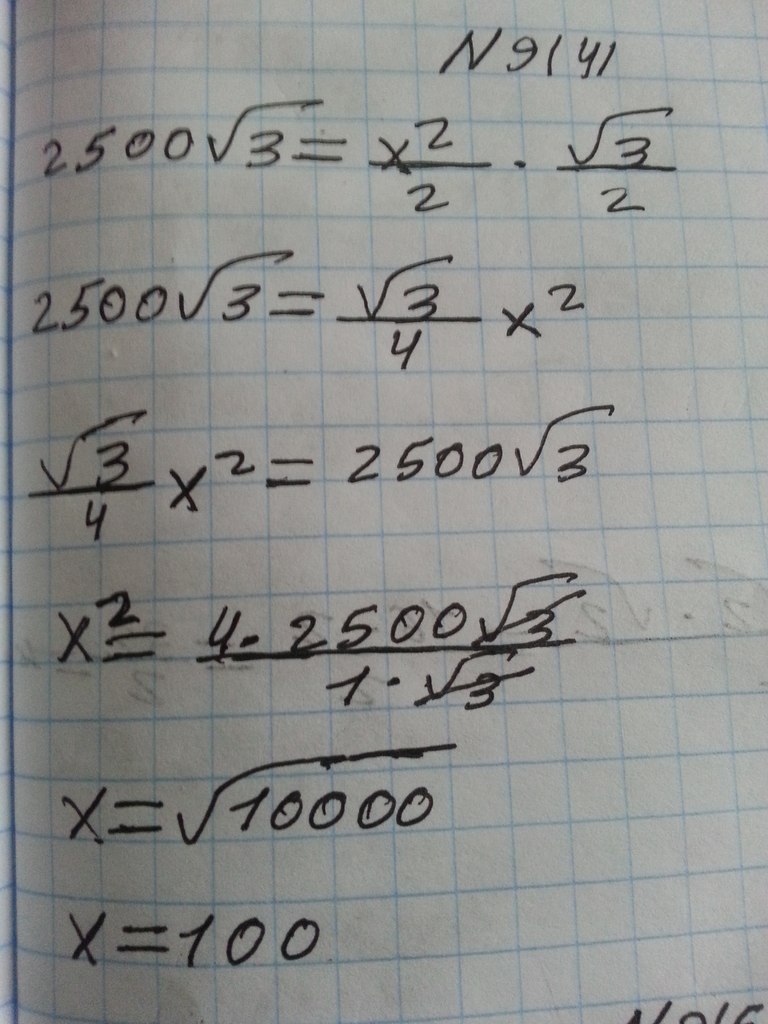 N 9(4)
2500√3 = x²/2 · √3/2
2500√3 = √3/4 x²
√3/4 x² = 2500√3
x² = 4·2500√3/1·√3
x = √10000
x = 100